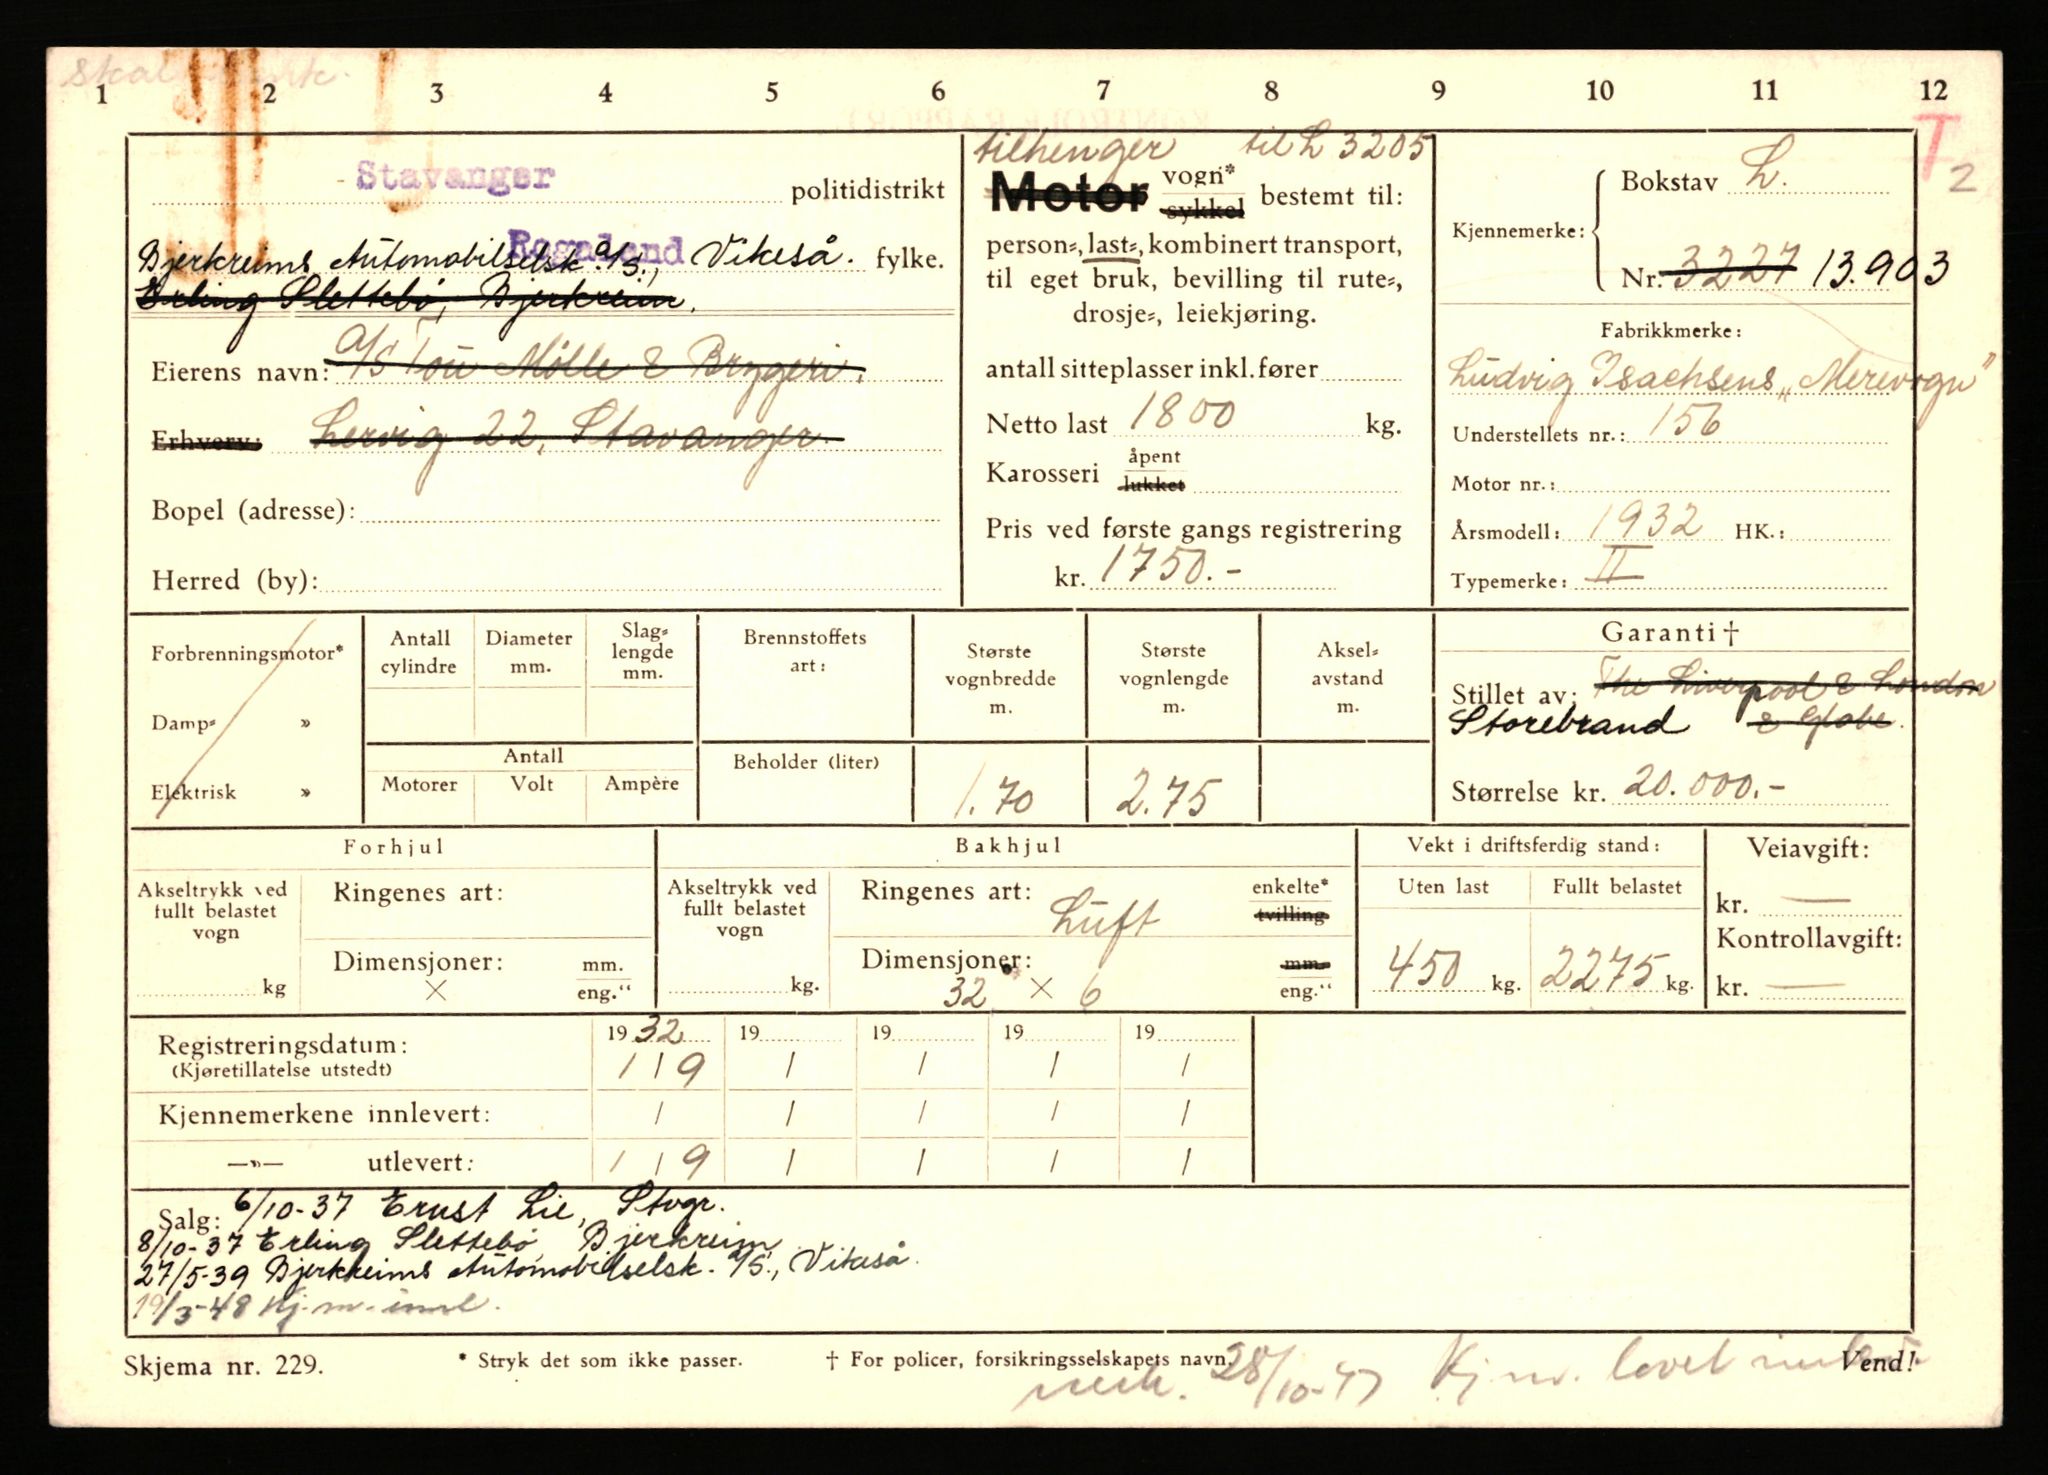 1 2 3 4 5 6 7 8 9 10 11 12
T
2
Stavanger politidistrikt
Rogaland fylke.
Bjerkreims Automobilselsk. A/S., Vikeså.
Erling Slettebø, Bjerkreim.
Eierens navn: A/S Tou Mølle & Bryggeri.
Erhverv: Lervig 22, Stavanger
Bopel (adresse):
Herred (by):
tilhenger til L 3205
Motor vogn* sykkel bestemt til:
person=, last=, kombinert transport,
til eget bruk, bevilling til rute=,
drosje=, leiekjøring.
antall sitteplasser inkl. fører
Netto last 1800 kg.
Karosseri åpent lukket
Pris ved første gangs registrering
kr. 1750.-
Kjennemerke: Bokstav L.
Nr. 3227 13.903
Fabrikkmerke:
Ludvig Isachsens „Merevogn"
Understellets nr.: 156
Motor nr.:
Årsmodell: 1932 HK.:
Typemerke: II
Forbrenningsmotor*
Damp= »
Elektrisk »
Antall cylindre
Diameter mm.
Slag= lengde mm.
Antall
Motorer Volt Ampère
Brennstoffets art:
Beholder (liter)
Største vognbredde m.
1.70
Største vognlengde m.
2.75
Aksel= avstand m.
Garanti †
Stillet av: The Liverpool & London
Storebrand & Globe.
Størrelse kr. 20.000.-
Forhjul
Akseltrykk ved fullt belastet vogn
kg
Ringenes art:
Dimensjoner: mm.
× eng."
Bakhjul
Akseltrykk ved fullt belastet vogn
kg.
Ringenes art: Luft enkelte* tvilling
Dimensjoner: mm.
32 × 6 eng."
Vekt i driftsferdig stand:
Uten last Fullt belastet
450 kg. 2275 kg.
Veiavgift:
kr. —
Kontrollavgift:
kr. —
Registreringsdatum: 1932 19 19 19 19
(Kjøretillatelse utstedt) 1 / 9 / / / /
Kjennemerkene innlevert: / / / / /
—»— utlevert: 1 / 9 / / / /
Salg: 6/10-37 Ernst Lie, Stvgr.
8/10-37 Erling Slettebø, Bjerkreim
27/5-39 Bjerkreims Automobilselsk. A/S., Vikeså.
19/3-48 Kj.m. innl.
Skjema nr. 229. * Stryk det som ikke passer. † For policer, forsikringsselskapets navn. Vend!
28/10-47 Kj.m. lovet